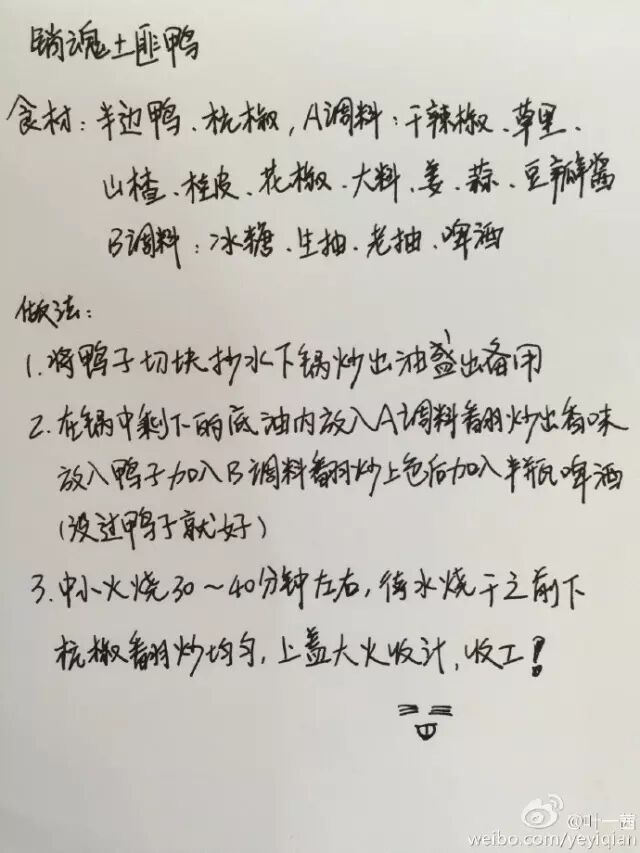 销魂土匪鸭
食材：半边鸭、杭椒，A调料：干辣椒、草果、
山楂、桂皮、花椒、大料、姜、蒜、豆瓣酱
B调料：冰糖、生抽、老抽、啤酒
做法：
1.将鸭子切块抄水下锅炒出油盛出备用
2.在锅中剩下的底油内放入A调料翻炒出香味
放入鸭子加入B调料翻炒上色后加入半瓶啤酒
(没过鸭子就好)
3.中小火烧30~40分钟左右，待水烧干之前下
杭椒翻炒均匀，上盖大火收汁，收工！
@叶一茜
weibo.com/yeyiqian